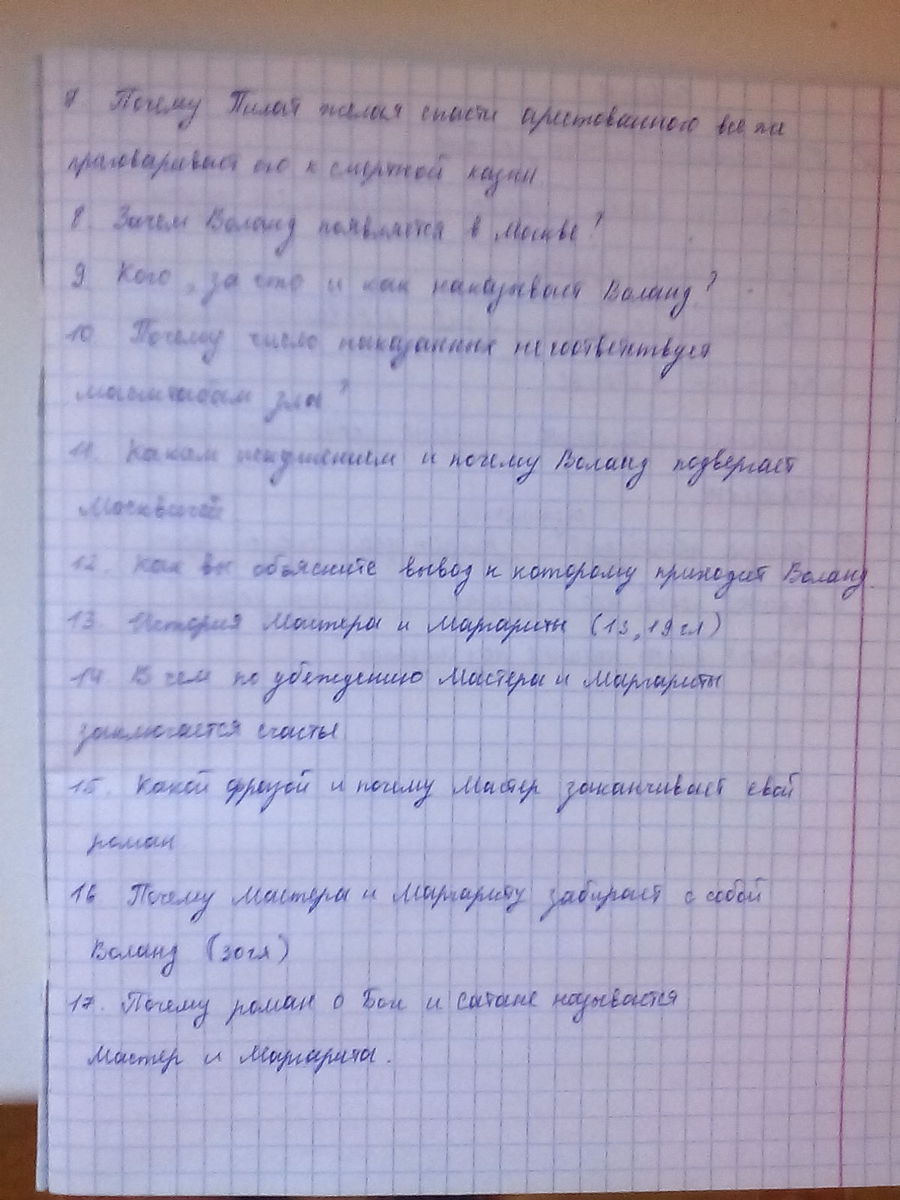 7 Почему Пилат желая спасти арестованного все же
приговаривает его к смертной казни
8. Зачем Воланд появляется в Москве?
9 Кого, за что и как наказывает Воланд?
10 Почему число наказанных не соответствует
масштабам зла?
11. Каким искушением и почему Воланд подвергает
Москвичей
12. Как вы объясните вывод к которому приходит Воланд.
13. История Мастера и Маргариты (13, 19 гл)
14 В чем по убеждению Мастера и Маргариты
заключается счастье
15. Какой фразой и почему Мастер заканчивает свой
роман
16 Почему Мастера и Маргариту забирает с собой
Воланд (30гл)
17. Почему роман о Боге и сатане называется
Мастер и Маргарита.